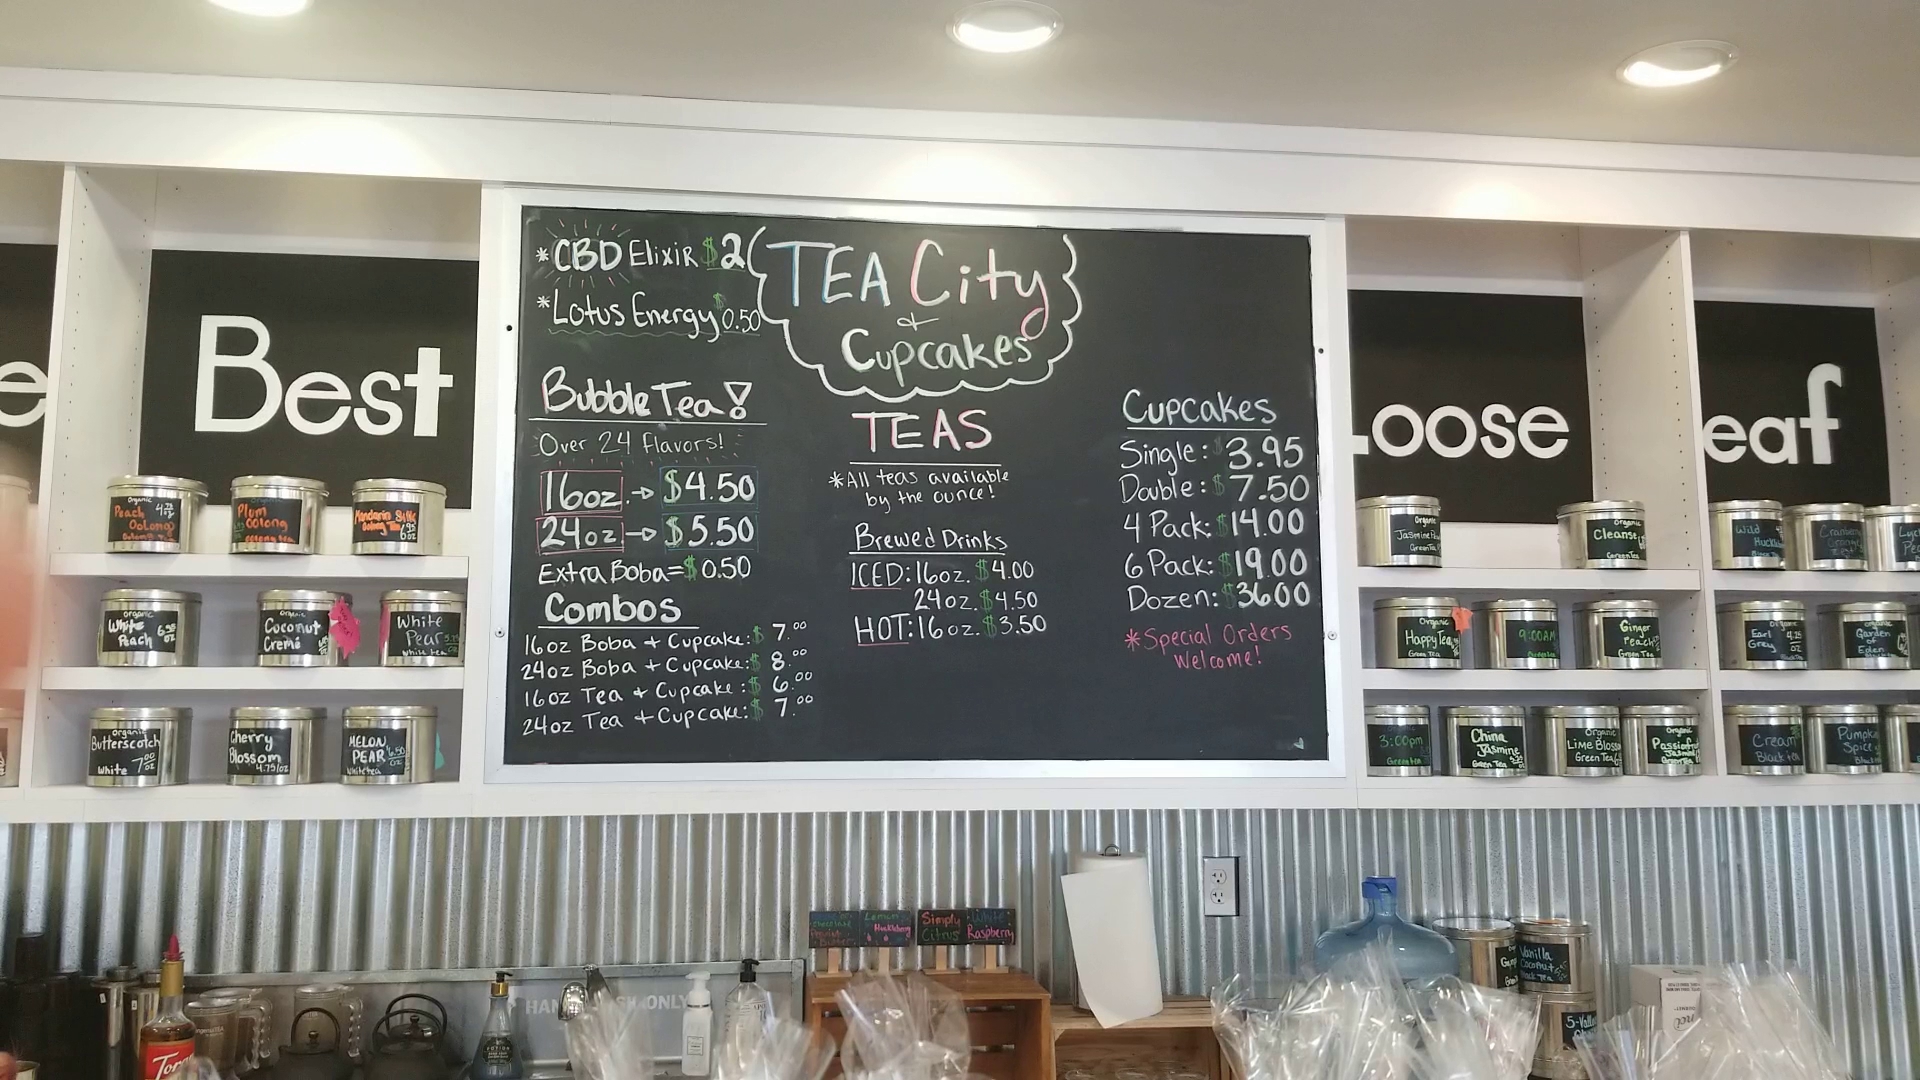 *CBD Elixir $2
*Lotus Energy $0.50
TEA City
&
Cupcakes
Bubble Tea!
Over 24 flavors!
16oz. → $4.50
24oz → $5.50
Extra Boba = $0.50
Combos
16oz Boba + Cupcake: $7.00
24oz Boba + Cupcake: $8.00
16oz Tea + Cupcake: $6.00
24oz Tea + Cupcake: $7.00
TEAS
*All teas available
by the ounce!
Brewed Drinks
ICED: 16oz. $4.00
24oz. $4.50
HOT: 16oz. $3.50
Cupcakes
Single: $3.95
Double: $7.50
4 Pack: $14.00
6 Pack: $19.00
Dozen: $36.00
*Special Orders
Welcome!
e
Best
Loose
eaf
Organic
Peach
OoLong
Organic
Plum
oolong
oolong tea
Mandarin Silk
Oolong Tea
Organic
White
Peach
Organic
Coconut
Creme
White
Pear
White tea
Organic
Butterscotch
White 7.00 oz
Cherry
Blossom
4.75/oz
MELON
PEAR $6.50 oz
White tea
Organic
Jasmine
Green Tea
Organic
Cleanse
Green Tea
Wild
Cranberry
Organic
Happy Tea
Green Tea
9:00AM
Organic
Ginger
Peach
Green Tea
Organic
Earl
Grey
4.25
oz
Organic
Garden
of
Eden
3:00pm
Green tea
China
Jasmine
Green Tea
Organic
Lime Blossom
Green Tea
Organic
Passionfruit
Jasmine
Green Tea
Cream
Black tea
Pumpkin
Spice
Lemon
Huckleberry
Simply
Citrus
White
Raspberry
Vanilla
Coconut
Black Tea
HAND WASH ONLY
Tora